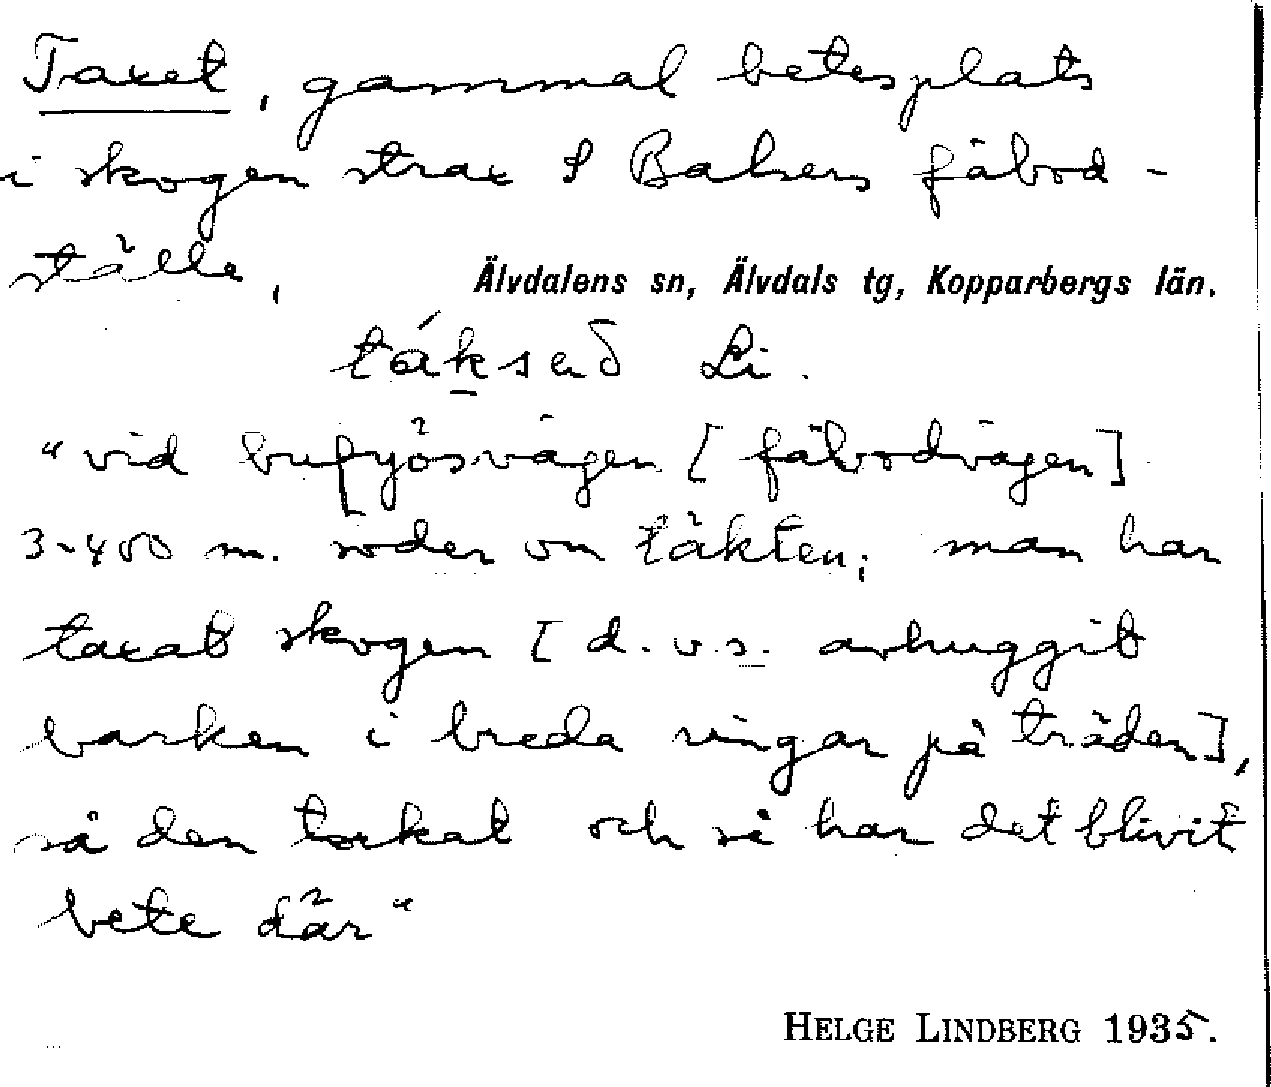 Taxet, gammal betesplats
i skogen strax S Balsers fäbod-
ställe,
Älvdalens sn, Älvdals tg, Kopparbergs län.
táksəð Li.
"vid bufjösvägen [fäbodvägen]
3-400 m. söder om täkten; man har
taxat skogen [d.v.s. avhuggit
barken i breda ringar på träden],
så den torkat och så har det blivit
bete där"
HELGE LINDBERG 1935.